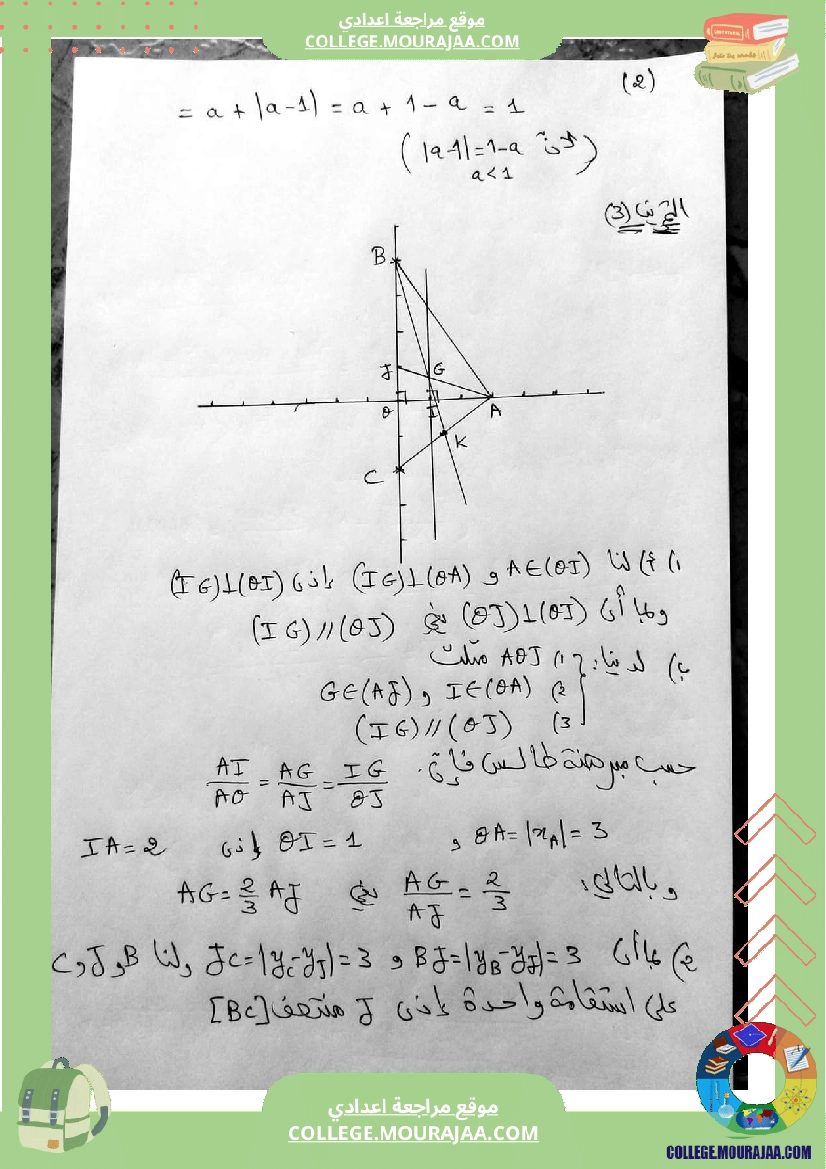 موقع مراجعة اعدادي
COLLEGE.MOURAJAA.COM
(2)
= a + |a-1| = a + 1 - a = 1
( |a-1| = 1-a لأن )
a < 1
التمرين (3)
B
J G
O I A
K
C
1) أ) لنا A∈(OI) و (IG)⊥(OA) إذن (IG)⊥(OI)
وبما أن (OJ)⊥(OI) فإن (IG)//(OJ)
ب) لدينا: 1) AOJ مثلث
2) I∈(OA) و G∈(AJ)
3) (IG)//(OJ)
حسب مبرهنة طاليس فإن: AI/AO = AG/AJ = IG/OJ
OA=|x_A|=3 و OI=1 إذن IA=2
وبالتالي: AG/AJ = 2/3 فإن AG = 2/3 AJ
2) بما أن BJ=|y_B-y_J|=3 و JC=|y_C-y_J|=3 ولنا B و J و C
على استقامة واحدة إذن J منتصف [BC]
موقع مراجعة اعدادي
COLLEGE.MOURAJAA.COM
COLLEGE.MOURAJAA.COM